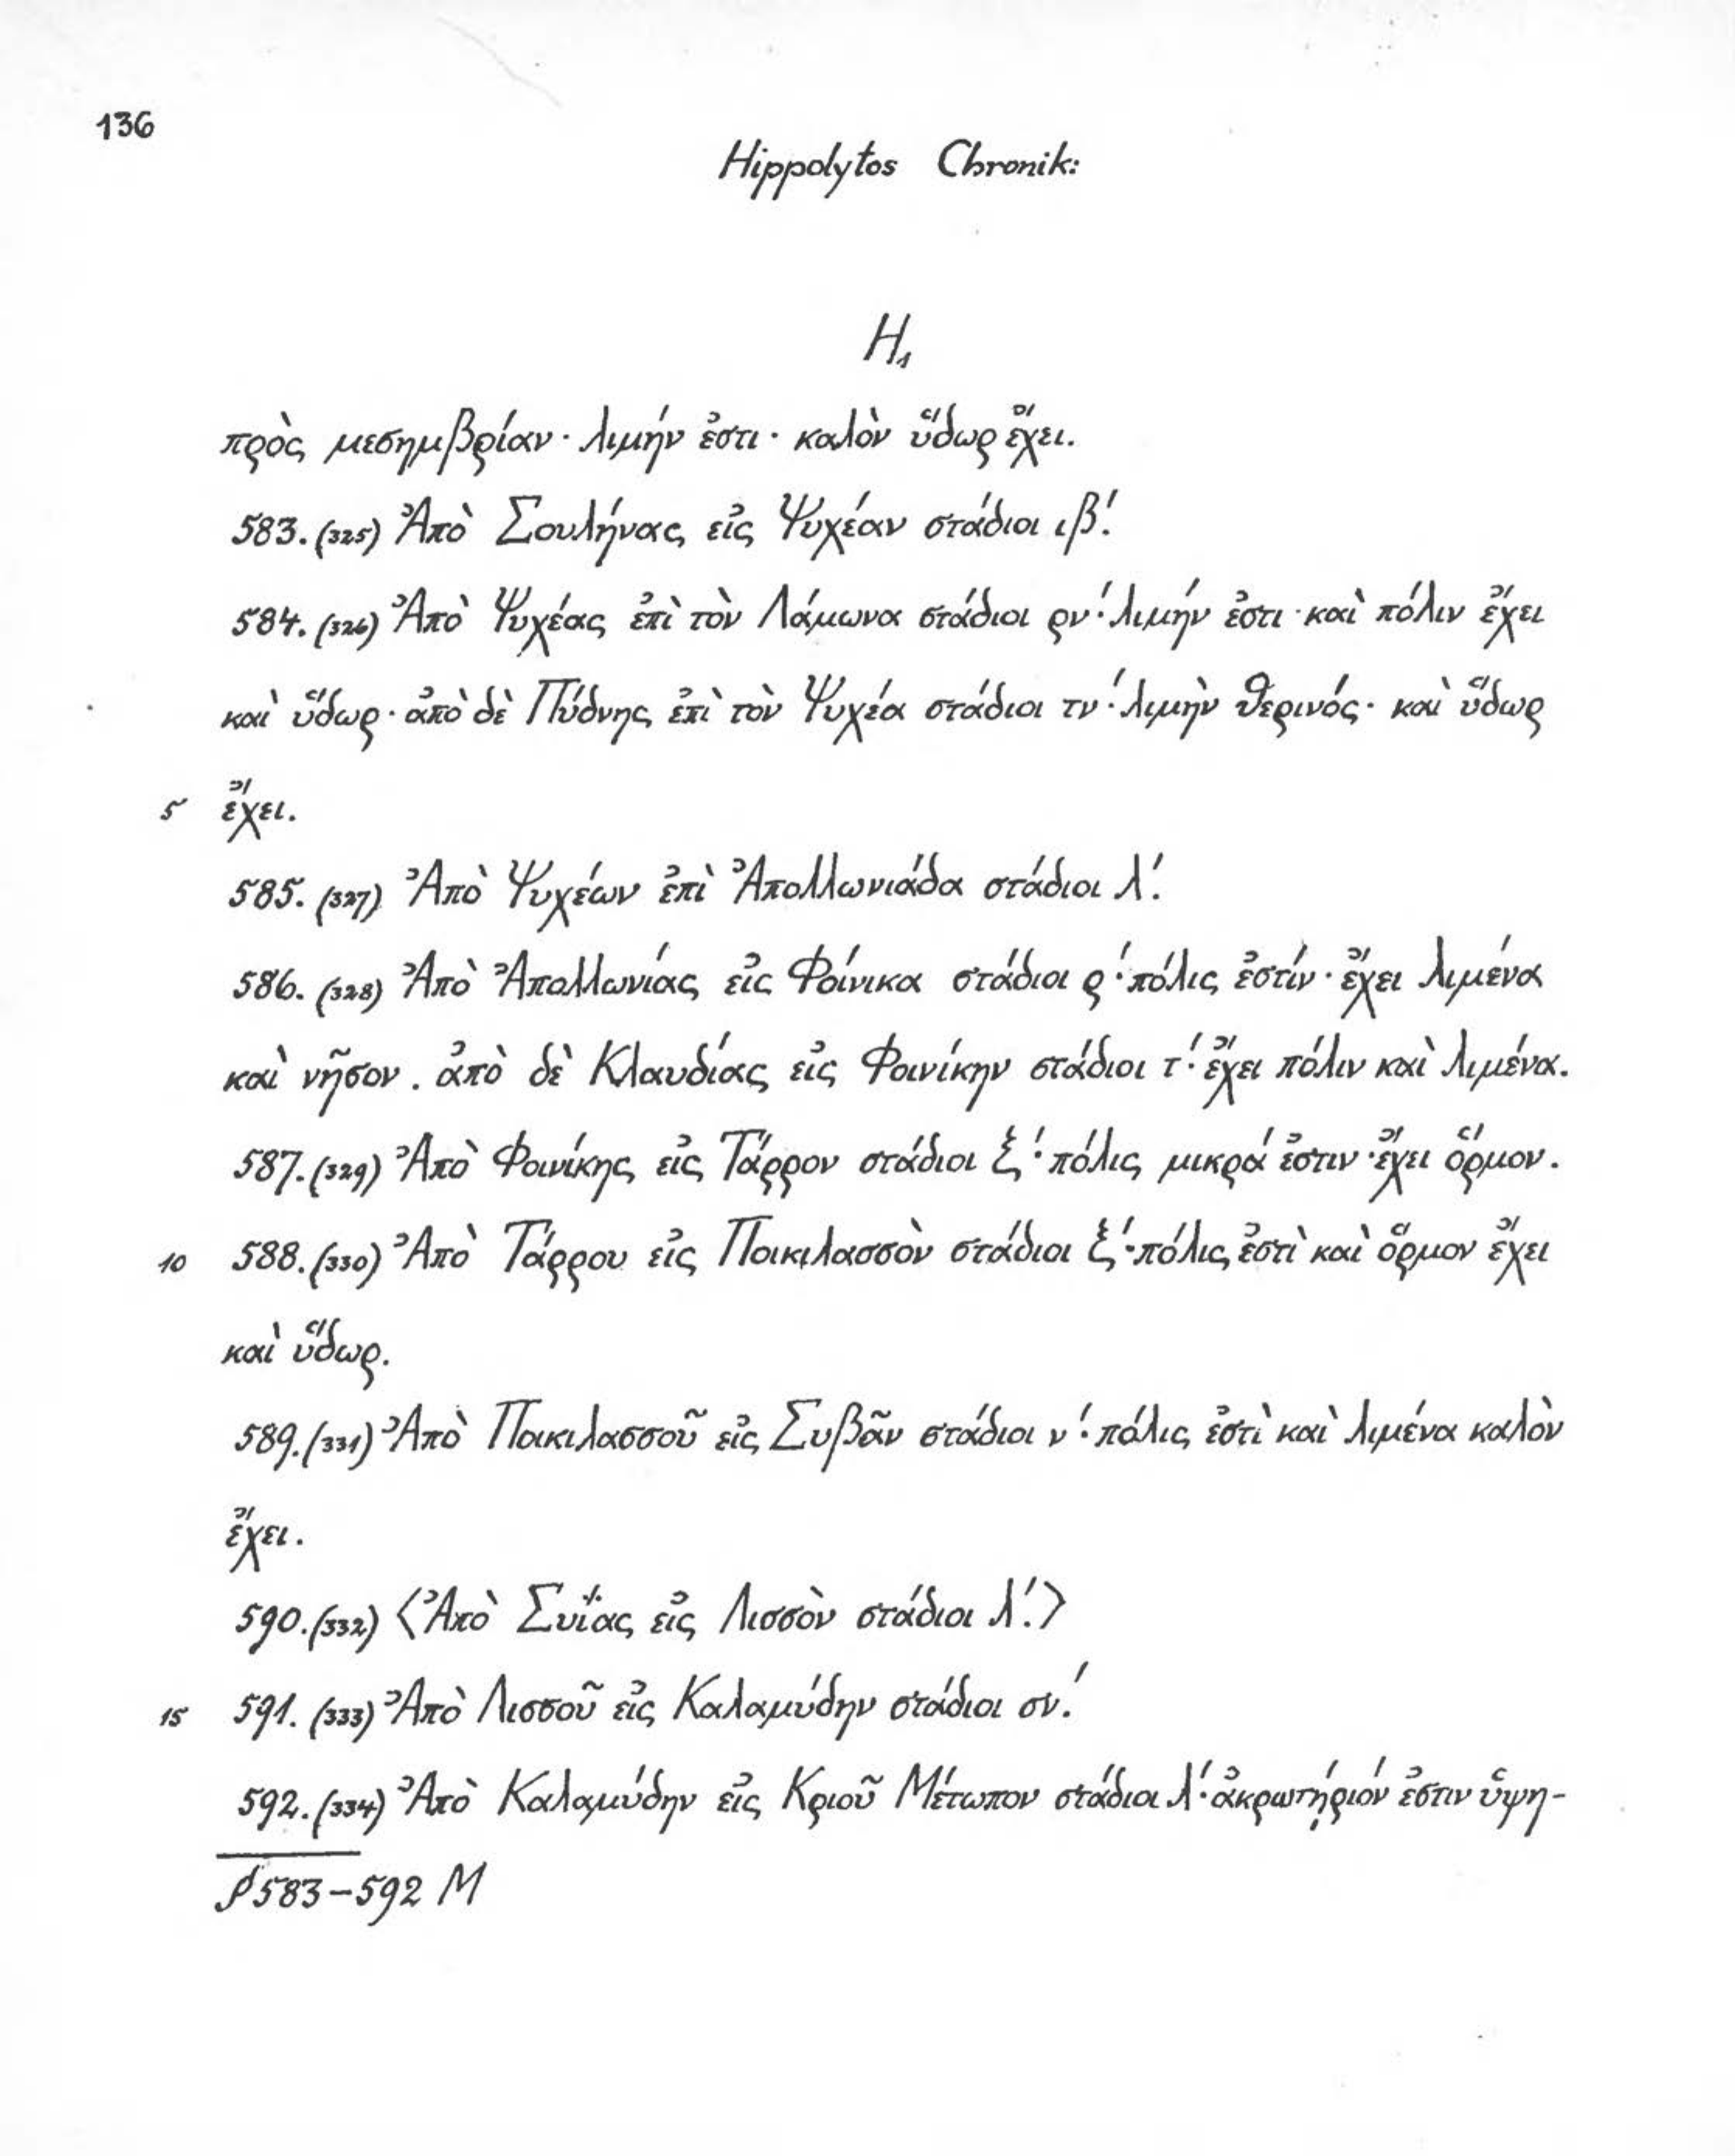 136
Hippolytos Chronik:
H₁
πρὸς μεσημβρίαν · λιμήν ἐστι · καλὸν ὕδωρ ἔχει.
583. (325) Ἀπὸ Σουλήνας εἰς Ψυχέαν στάδιοι ιβ΄.
584. (326) Ἀπὸ Ψυχέας ἐπὶ τὸν Λάμωνα στάδιοι ρν΄· λιμήν ἐστι · καὶ πόλιν ἔχει
καὶ ὕδωρ · ἀπὸ δὲ Πύδνης ἐπὶ τὸν Ψυχέα στάδιοι τν΄· λιμὴν θερινός · καὶ ὕδωρ
5 ἔχει.
585. (327) Ἀπὸ Ψυχέων ἐπὶ Ἀπολλωνιάδα στάδιοι λ΄.
586. (328) Ἀπὸ Ἀπολλωνίας εἰς Φοίνικα στάδιοι ρ΄· πόλις ἐστίν · ἔχει λιμένα
καὶ νῆσον . ἀπὸ δὲ Κλαυδίας εἰς Φοινίκην στάδιοι τ΄· ἔχει πόλιν καὶ λιμένα.
587. (329) Ἀπὸ Φοινίκης εἰς Τάρρον στάδιοι ξ΄· πόλις μικρά ἐστιν · ἔχει ὅρμον.
10 588. (330) Ἀπὸ Τάρρου εἰς Ποικιλασσὸν στάδιοι ξ΄· πόλις ἐστὶ καὶ ὅρμον ἔχει
καὶ ὕδωρ.
589. (331) Ἀπὸ Ποικιλασσοῦ εἰς Συβᾶν στάδιοι ν΄· πόλις ἐστὶ καὶ λιμένα καλὸν
ἔχει.
590. (332) ⟨Ἀπὸ Συΐας εἰς Λισσὸν στάδιοι λ΄.⟩
15 591. (333) Ἀπὸ Λισσοῦ εἰς Καλαμύδην στάδιοι σν΄.
592. (334) Ἀπὸ Καλαμύδην εἰς Κριοῦ Μέτωπον στάδιοι λ΄· ἀκρωτήριόν ἐστιν ὑψη-
583–592 M